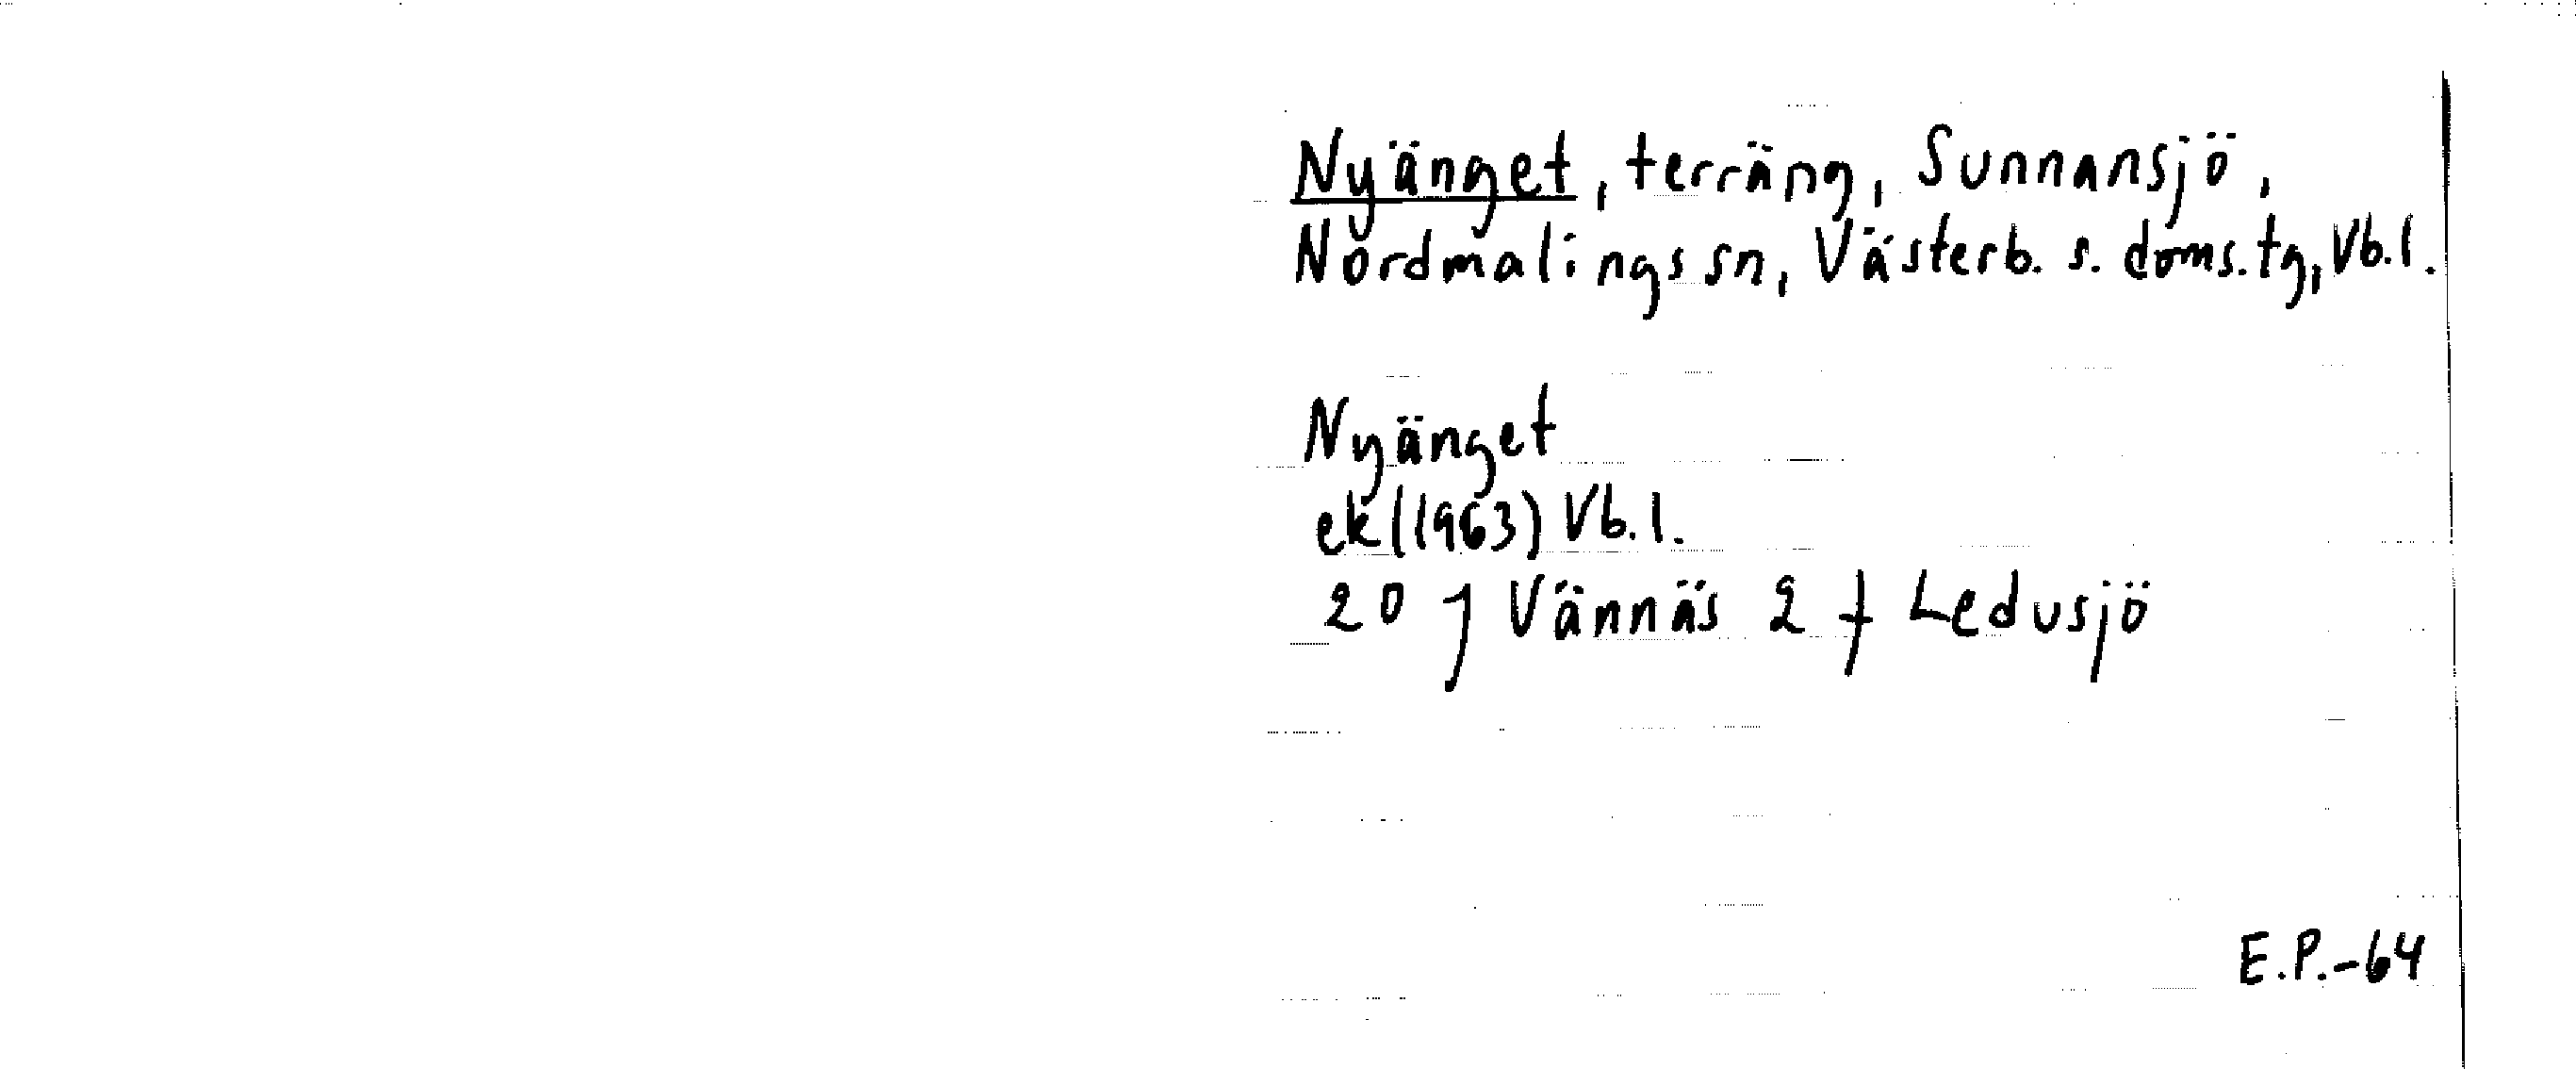 Nyänget, terräng, Sunnansjö,
Nordmalings sn, Västerb. s. doms. tg, Vb. l.
Nyänget
ek (1963) Vb. l.
20 J Vännäs 2 f Ledusjö
E.P.-64